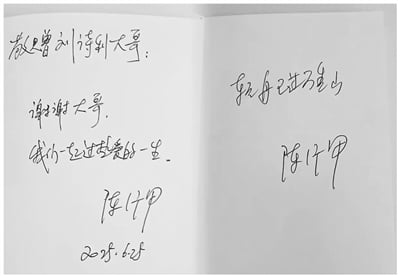 敬赠刘诗利大哥：
谢谢大哥.
我们一起过热爱的一生。
陈行甲
2025.6.25
轻舟已过万重山
陈行甲